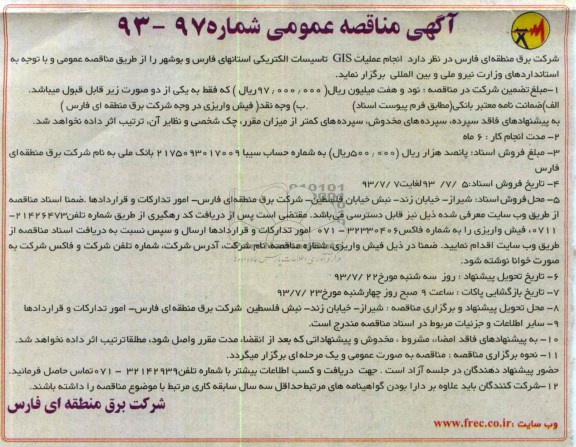 آگهی مناقصه عمومی شماره ۹۷- ۹۳
شرکت برق منطقه‌ای فارس در نظر دارد انجام عملیات GIS تاسیسات الکتریکی استانهای فارس و بوشهر را از طریق مناقصه عمومی و با توجه به
استانداردهای وزارت نیرو ملی و بین المللی برگزار نماید.
۱-مبلغ تضمین شرکت در مناقصه : نود و هفت میلیون ریال( ۹۷/۰۰۰/۰۰۰ریال ) که فقط به یکی از دو صورت زیر قابل قبول میباشد.
الف)ضمانت نامه معتبر بانکی(مطابق فرم پیوست اسناد) .ب) وجه نقد( فیش واریزی در وجه شرکت برق منطقه ای فارس )
به پیشنهادهای فاقد سپرده، سپرده‌های مخدوش، سپرده‌های کمتر از میزان مقرر، چک شخصی و نظایر آن، ترتیب اثر داده نخواهد شد.
۲- مدت انجام کار : ۶ ماه
۳- مبلغ فروش اسناد: پانصد هزار ریال (۵۰۰/۰۰۰ریال) به شماره حساب سیبا ۲۱۷۵۰۹۳۰۱۷۰۰۹ بانک ملی به نام شرکت برق منطقه‌ای
فارس
۴- تاریخ فروش اسناد:۵ /۷/ ۹۳لغایت۷ /۹۳/۷
۵- محل فروش اسناد: شیراز- خیابان زند- نبش خیابان فلسطین- شرکت برق منطقه‌ای فارس- امور تدارکات و قراردادها .ضمنا اسناد مناقصه
از طریق وب سایت معرفی شده ذیل نیز قابل دسترسی می‌باشد. مقتضی است پس از دریافت کد رهگیری از طریق شماره تلفن۲۱۴۲۶۴۷۳-
۰۷۱۱، فیش واریزی را به شماره فاکس۳۲۳۳۰۴۰۶- ۰۷۱ امور تدارکات و قراردادها ارسال و سپس نسبت به دریافت اسناد مناقصه از
طریق وب سایت اقدام نمایید. ضمنا در ذیل فیش واریزی شماره مناقصه، نام شرکت، آدرس شرکت، شماره تلفن شرکت و فاکس شرکت به
صورت خوانا نوشته شود.
۶- تاریخ تحویل پیشنهاد : روز سه شنبه مورخ۲۲ /۹۳/۷
۷- تاریخ بازگشایی پاکات : ساعت ۹ صبح روز چهارشنبه مورخ۲۳ /۹۳/۷
۸- محل تحویل پیشنهاد و برگزاری مناقصه : شیراز- خیابان زند- نبش فلسطین شرکت برق منطقه‌ای فارس- امور تدارکات و قراردادها
۹- سایر اطلاعات و جزئیات مربوط در اسناد مناقصه مندرج است.
۱۰- به پیشنهادهای فاقد امضاء، مشروط ، مخدوش و پیشنهاداتی که بعد از انقضاء مدت مقرر واصل شود، مطلقا ترتیب اثر داده نخواهد شد.
۱۱- نحوه برگزاری مناقصه : مناقصه به صورت عمومی و یک مرحله‌ای برگزار میگردد.
حضور پیشنهاد دهندگان در جلسه آزاد است . جهت دریافت و کسب اطلاعات بیشتر با شماره تلفن۳۲۱۴۲۹۳۹- ۰۷۱ تماس حاصل فرمائید.
۱۲-شرکت کنندگان باید علاوه بر دارا بودن گواهینامه های مرتبط حداقل سه سال سابقه کاری مرتبط با موضوع مناقصه را داشته باشند.
شرکت برق منطقه ای فارس
وب سایت :www.frec.co.ir